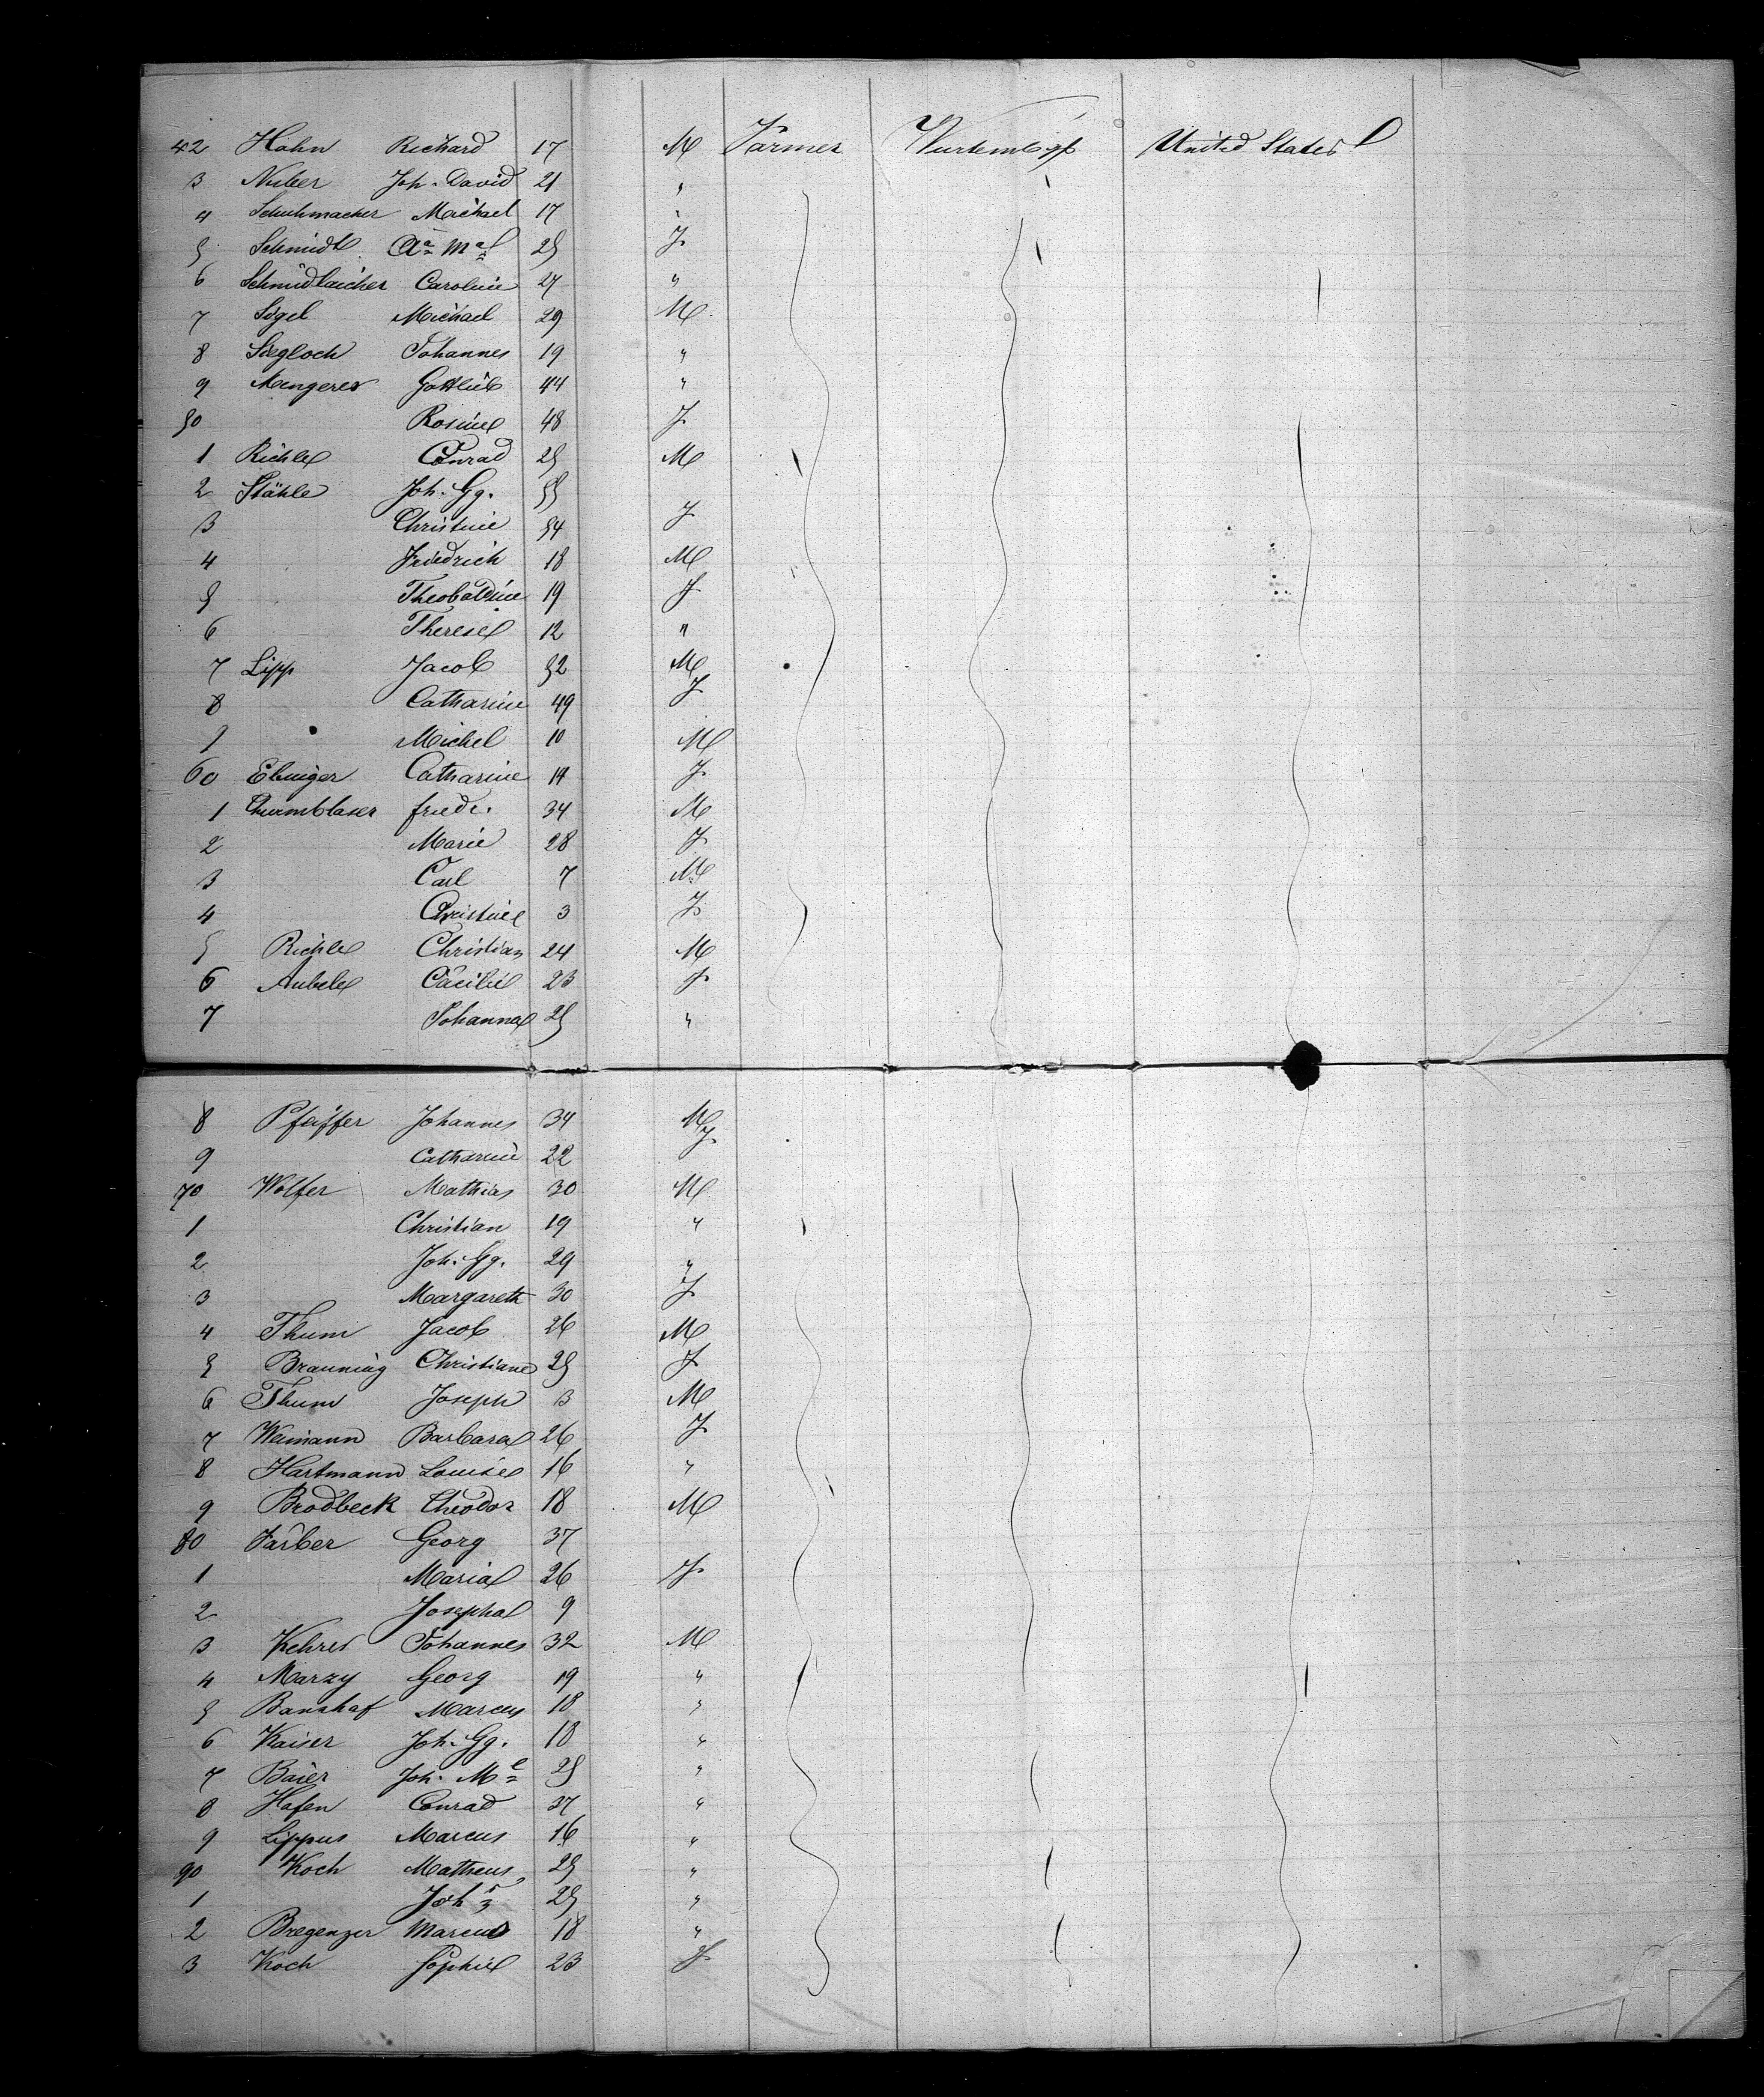 42 Hahn Richard 17 M Farmer Wurtembg United States
3 Nuber Joh. David 21 "
4 Schuhmacher Michael 17 "
5 Schmidt Aa Ma 25 F
6 Schmidlaicher Caroline 27 "
7 Sigel Michael 29 M
8 Siegloch Johannes 19 "
9 Mangerer Gottlieb 44 "
50 Rosine 48 F
1 Richle Conrad 25 M
2 Stähle Joh. Gg. 55
3 Christine 54 F
4 Friedrich 18 M
5 Theobaldine 19 F
6 Therese 12 "
7 Lipp Jacob 52 M
8 Catharine 49 F
9 Michel 10 M
60 Ebinger Catharine 14 F
1 Thurmblaser friedr. 34 M
2 Marie 28 F
3 Carl 7 M
4 Christine 3 F
5 Richle Christian 24 M
6 Aubele Cäcilie 23 F
7 Johanna 25 "
8 Pfeiffer Johannes 34 M
9 Catharine 22 F
70 Wolfer Mathias 30 M
1 Christian 19 "
2 Joh. Gg. 29 "
3 Margareth 30 F
4 Thum Jacob 26 M
5 Brauning Christiane 25 F
6 Thum Joseph 3 M
7 Weimann Barbara 26 F
8 Hartmann Louise 16 "
9 Brodbeck Theodor 18 M
80 Färber Georg 37
1 Maria 26 F
2 Josepha 9
3 Kehrer Johannes 32 M
4 Marzy Georg 19 "
5 Banshaf Marcus 18 "
6 Kaiser Joh. Gg. 18 "
7 Baier Joh. Ml 25 "
8 Hafen Conrad 37 "
9 Lippus Marcus 16 "
90 Koch Matheus 25 "
1 Joh 25 "
2 Bregenzer Marcus 18 "
3 Koch Sophie 23 F